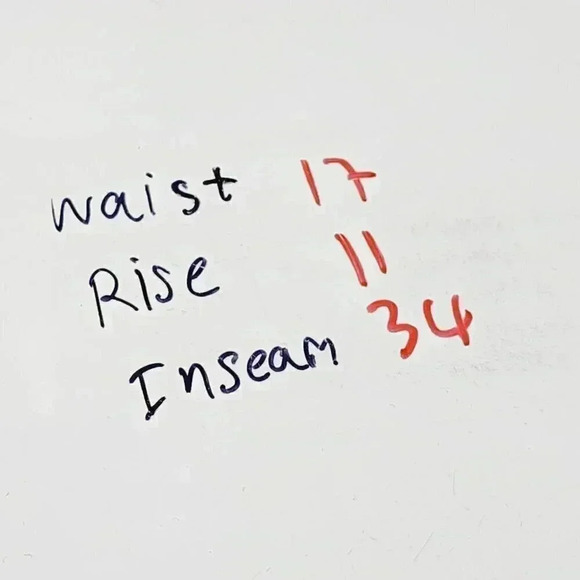 waist 17
Rise 11
Inseam 34